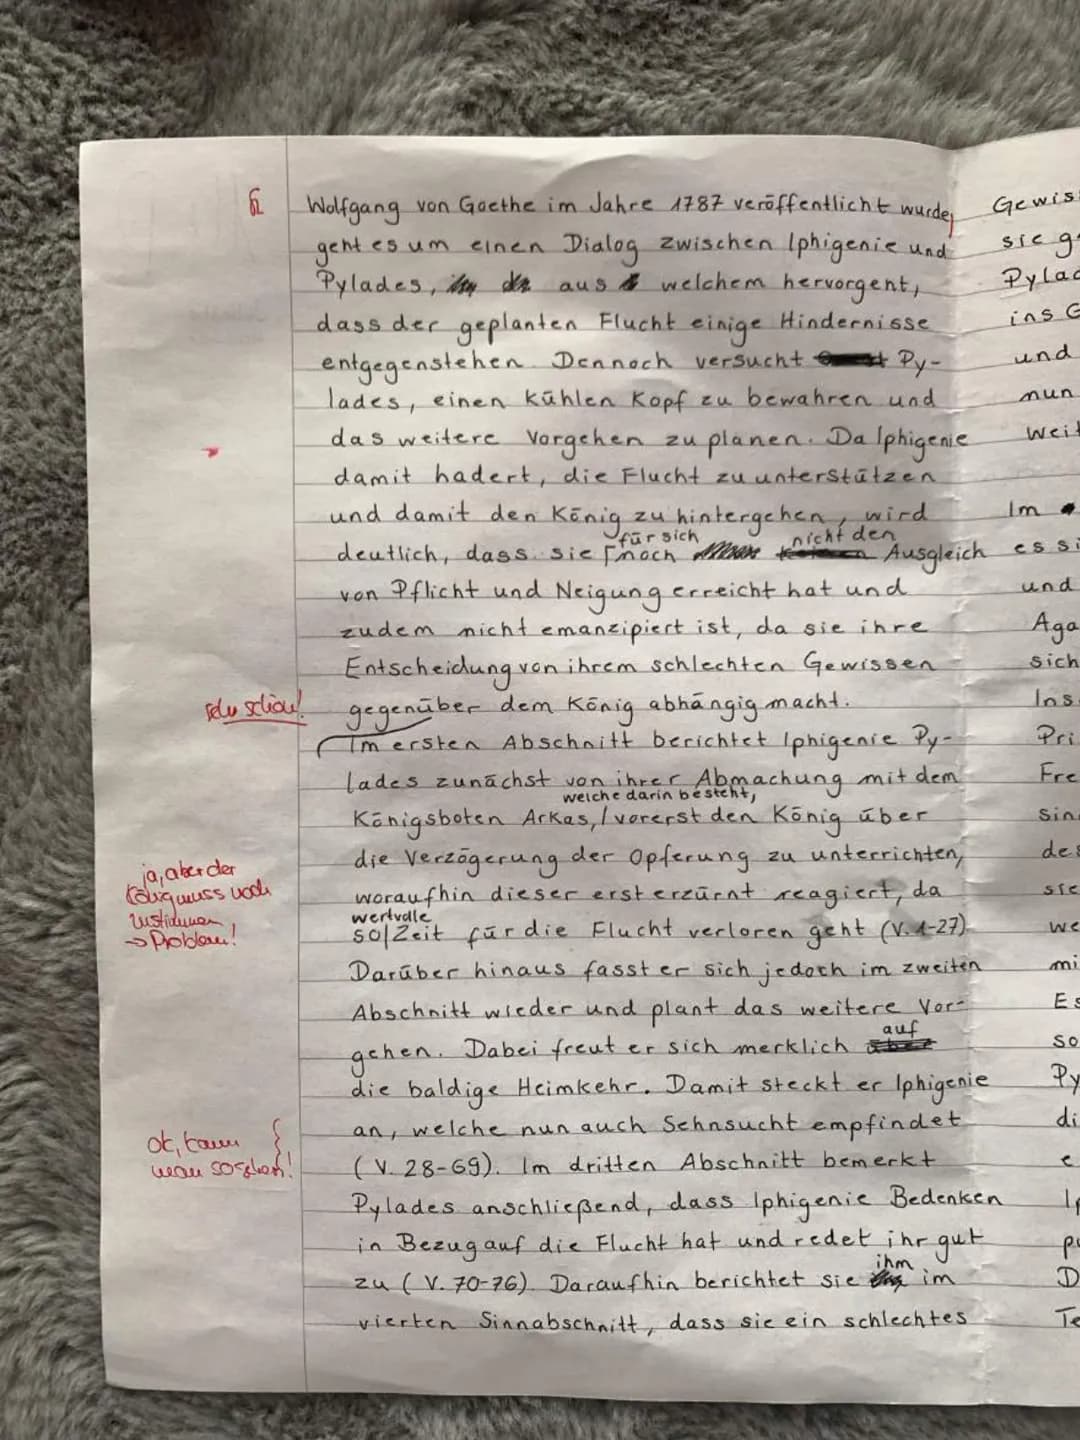 Wolfgang von Goethe im Jahre 1787 veröffentlicht wurde,
geht es um einen Dialog zwischen Iphigenie und
Pylades, aus welchem hervorgeht,
dass der geplanten Flucht einige Hindernisse
entgegenstehen. Dennoch versucht Py-
lades, einen kühlen Kopf zu bewahren und
das weitere Vorgehen zu planen. Da Iphigenie
damit hadert, die Flucht zu unterstützen
und damit den König zu hintergehen, wird
deutlich, dass sie für sich noch nicht den Ausgleich
von Pflicht und Neigung erreicht hat und
zudem nicht emanzipiert ist, da sie ihre
Entscheidung von ihrem schlechten Gewissen
sehr schön!
gegenüber dem König abhängig macht.
Im ersten Abschnitt berichtet Iphigenie Py-
lades zunächst von ihrer Abmachung mit dem
Königsboten Arkas, welche darin besteht, vorerst den König über
die Verzögerung der Opferung zu unterrichten,
woraufhin dieser erst erzürnt reagiert, da
so wertvolle Zeit für die Flucht verloren geht (V. 1-27).
ja, aber der
König muss noch
zustimmen
→ Problem!
Darüber hinaus fasst er sich jedoch im zweiten
Abschnitt wieder und plant das weitere Vor-
gehen. Dabei freut er sich merklich auf
die baldige Heimkehr. Damit steckt er Iphigenie
an, welche nun auch Sehnsucht empfindet
(V. 28-69). Im dritten Abschnitt bemerkt
ok, kann
man so sehen!
Pylades anschließend, dass Iphigenie Bedenken
in Bezug auf die Flucht hat und redet ihr gut
zu (V. 70-76). Daraufhin berichtet sie ihm im
vierten Sinnabschnitt, dass sie ein schlechtes
Gewis
sie g
Pylad
ins G
und
nun
weit
Im
es si
und
Aga
sich
Ins
Pri
Fre
sin
des
sie
we
mi
Es
so
Py
di
e
Ip
D
Te